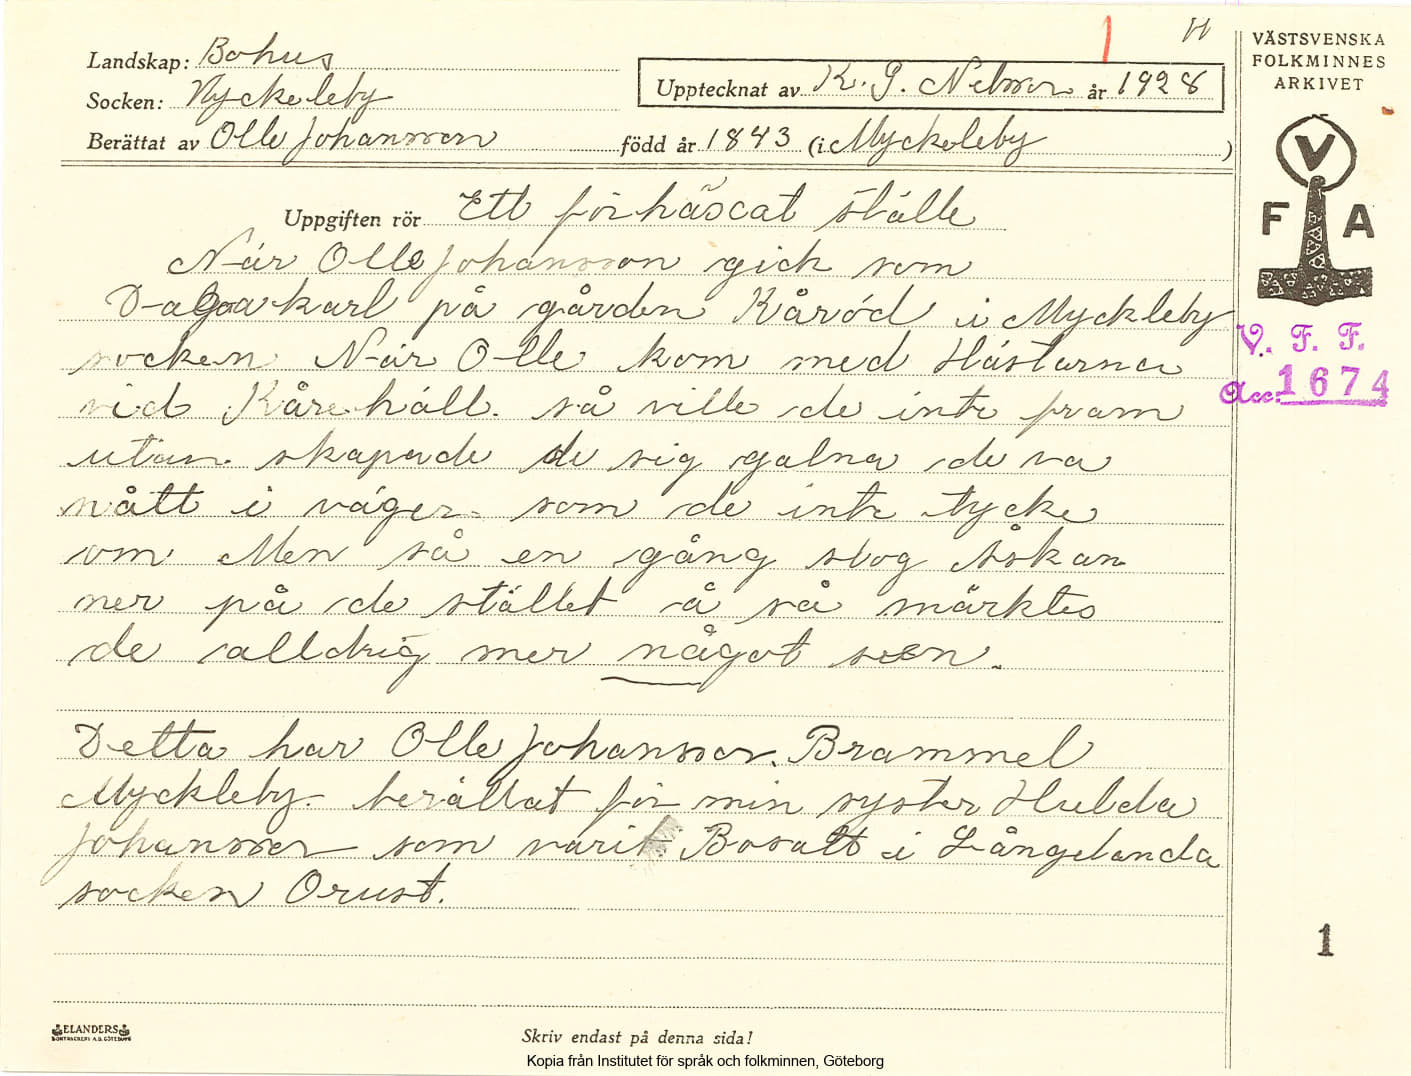 1 H
VÄSTSVENSKA
FOLKMINNES
ARKIVET
Landskap: Bohus
Socken: Myckeleby
Upptecknat av K. G. Nelsson år 1928
Berättat av Olle Johansson född år 1843 (i Myckeleby)
V
F A
Uppgiften rör Ett förhäscat ställe
När Olle Johansson gick som
Dagakarl på gården Kåröd i Myckleby
socken När Olle kom med Hästarna
vid Kårehåll. så ville de inte fram
utan skapade de sig galna de va
nått i vägen som de inte tycke
om Men så en gång slog Åskan
ner på de stället å så märktes
de alldrig mer något seen.
Detta har Olle Johansson. Brammel
Myckleby berättat för min syster Hulda
Johansson som varit Bosatt i Långelanda
socken Orust.
V. F. F.
Acc: 1674
1
ELANDERS
BOKTRYCKERI A.B. GÖTEBORG
Skriv endast på denna sida!
Kopia från Institutet för språk och folkminnen, Göteborg